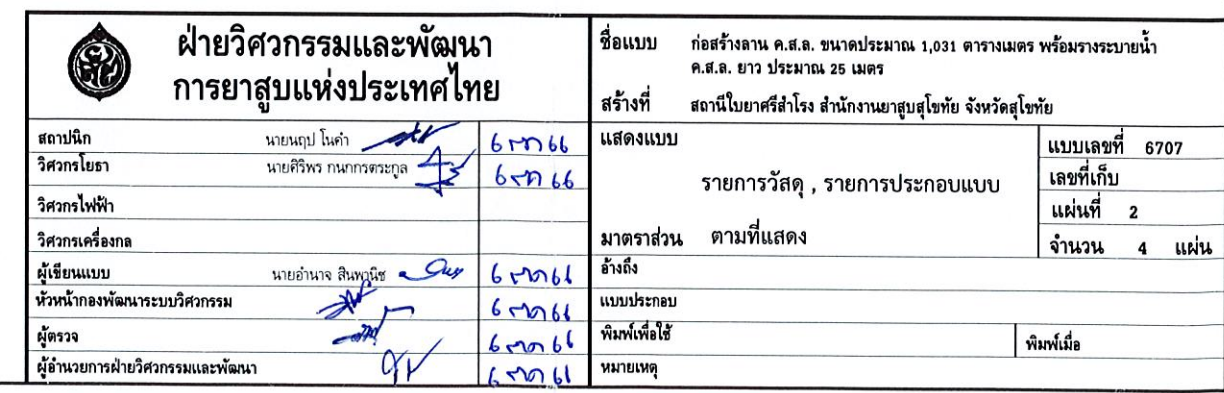 ฝ่ายวิศวกรรมและพัฒนา
การยาสูบแห่งประเทศไทย
สถาปนิก นายนฤป โนคำ
วิศวกรโยธา นายศิริพร กนกกรตระกูล
วิศวกรไฟฟ้า
วิศวกรเครื่องกล
ผู้เขียนแบบ นายอำนาจ สินพานิช
หัวหน้ากองพัฒนาระบบวิศวกรรม
ผู้ตรวจ
ผู้อำนวยการฝ่ายวิศวกรรมและพัฒนา
ชื่อแบบ ก่อสร้างลาน ค.ส.ล. ขนาดประมาณ 1,031 ตารางเมตร พร้อมรางระบายน้ำ
ค.ส.ล. ยาว ประมาณ 25 เมตร
สร้างที่ สถานีใบยาศรีสำโรง สำนักงานยาสูบสุโขทัย จังหวัดสุโขทัย
แสดงแบบ
รายการวัสดุ , รายการประกอบแบบ
มาตราส่วน ตามที่แสดง
แบบเลขที่ 6707
เลขที่เก็บ
แผ่นที่ 2
จำนวน 4 แผ่น
อ้างถึง
แบบประกอบ
พิมพ์เพื่อใช้
พิมพ์เมื่อ
หมายเหตุ